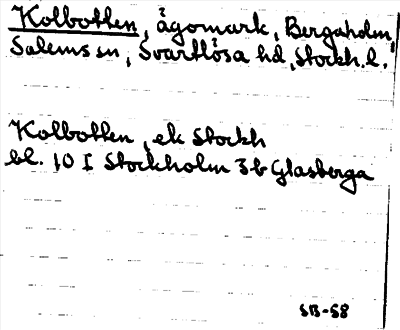 Kolbotten, ägomark, Bergaholm,
Salems sn, Svartlösa hd, Stockh. l.
Kolbotten, ek Stockh
bl. 10 I Stockholm 3b Glasberga
SB-58